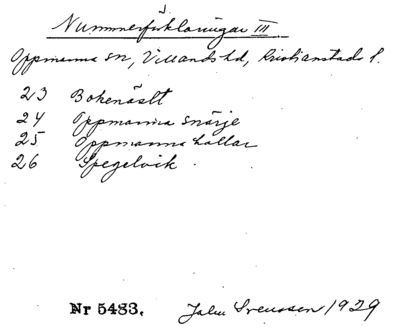 Nummerförklaringar III
Oppmanna sn, Villands hd, Kristianstads l.
23 Bokenäslt
24 Oppmanna snärje
25 Oppmanna hallar
26 Spegelvik
Nr 5483. John Svensson 1929